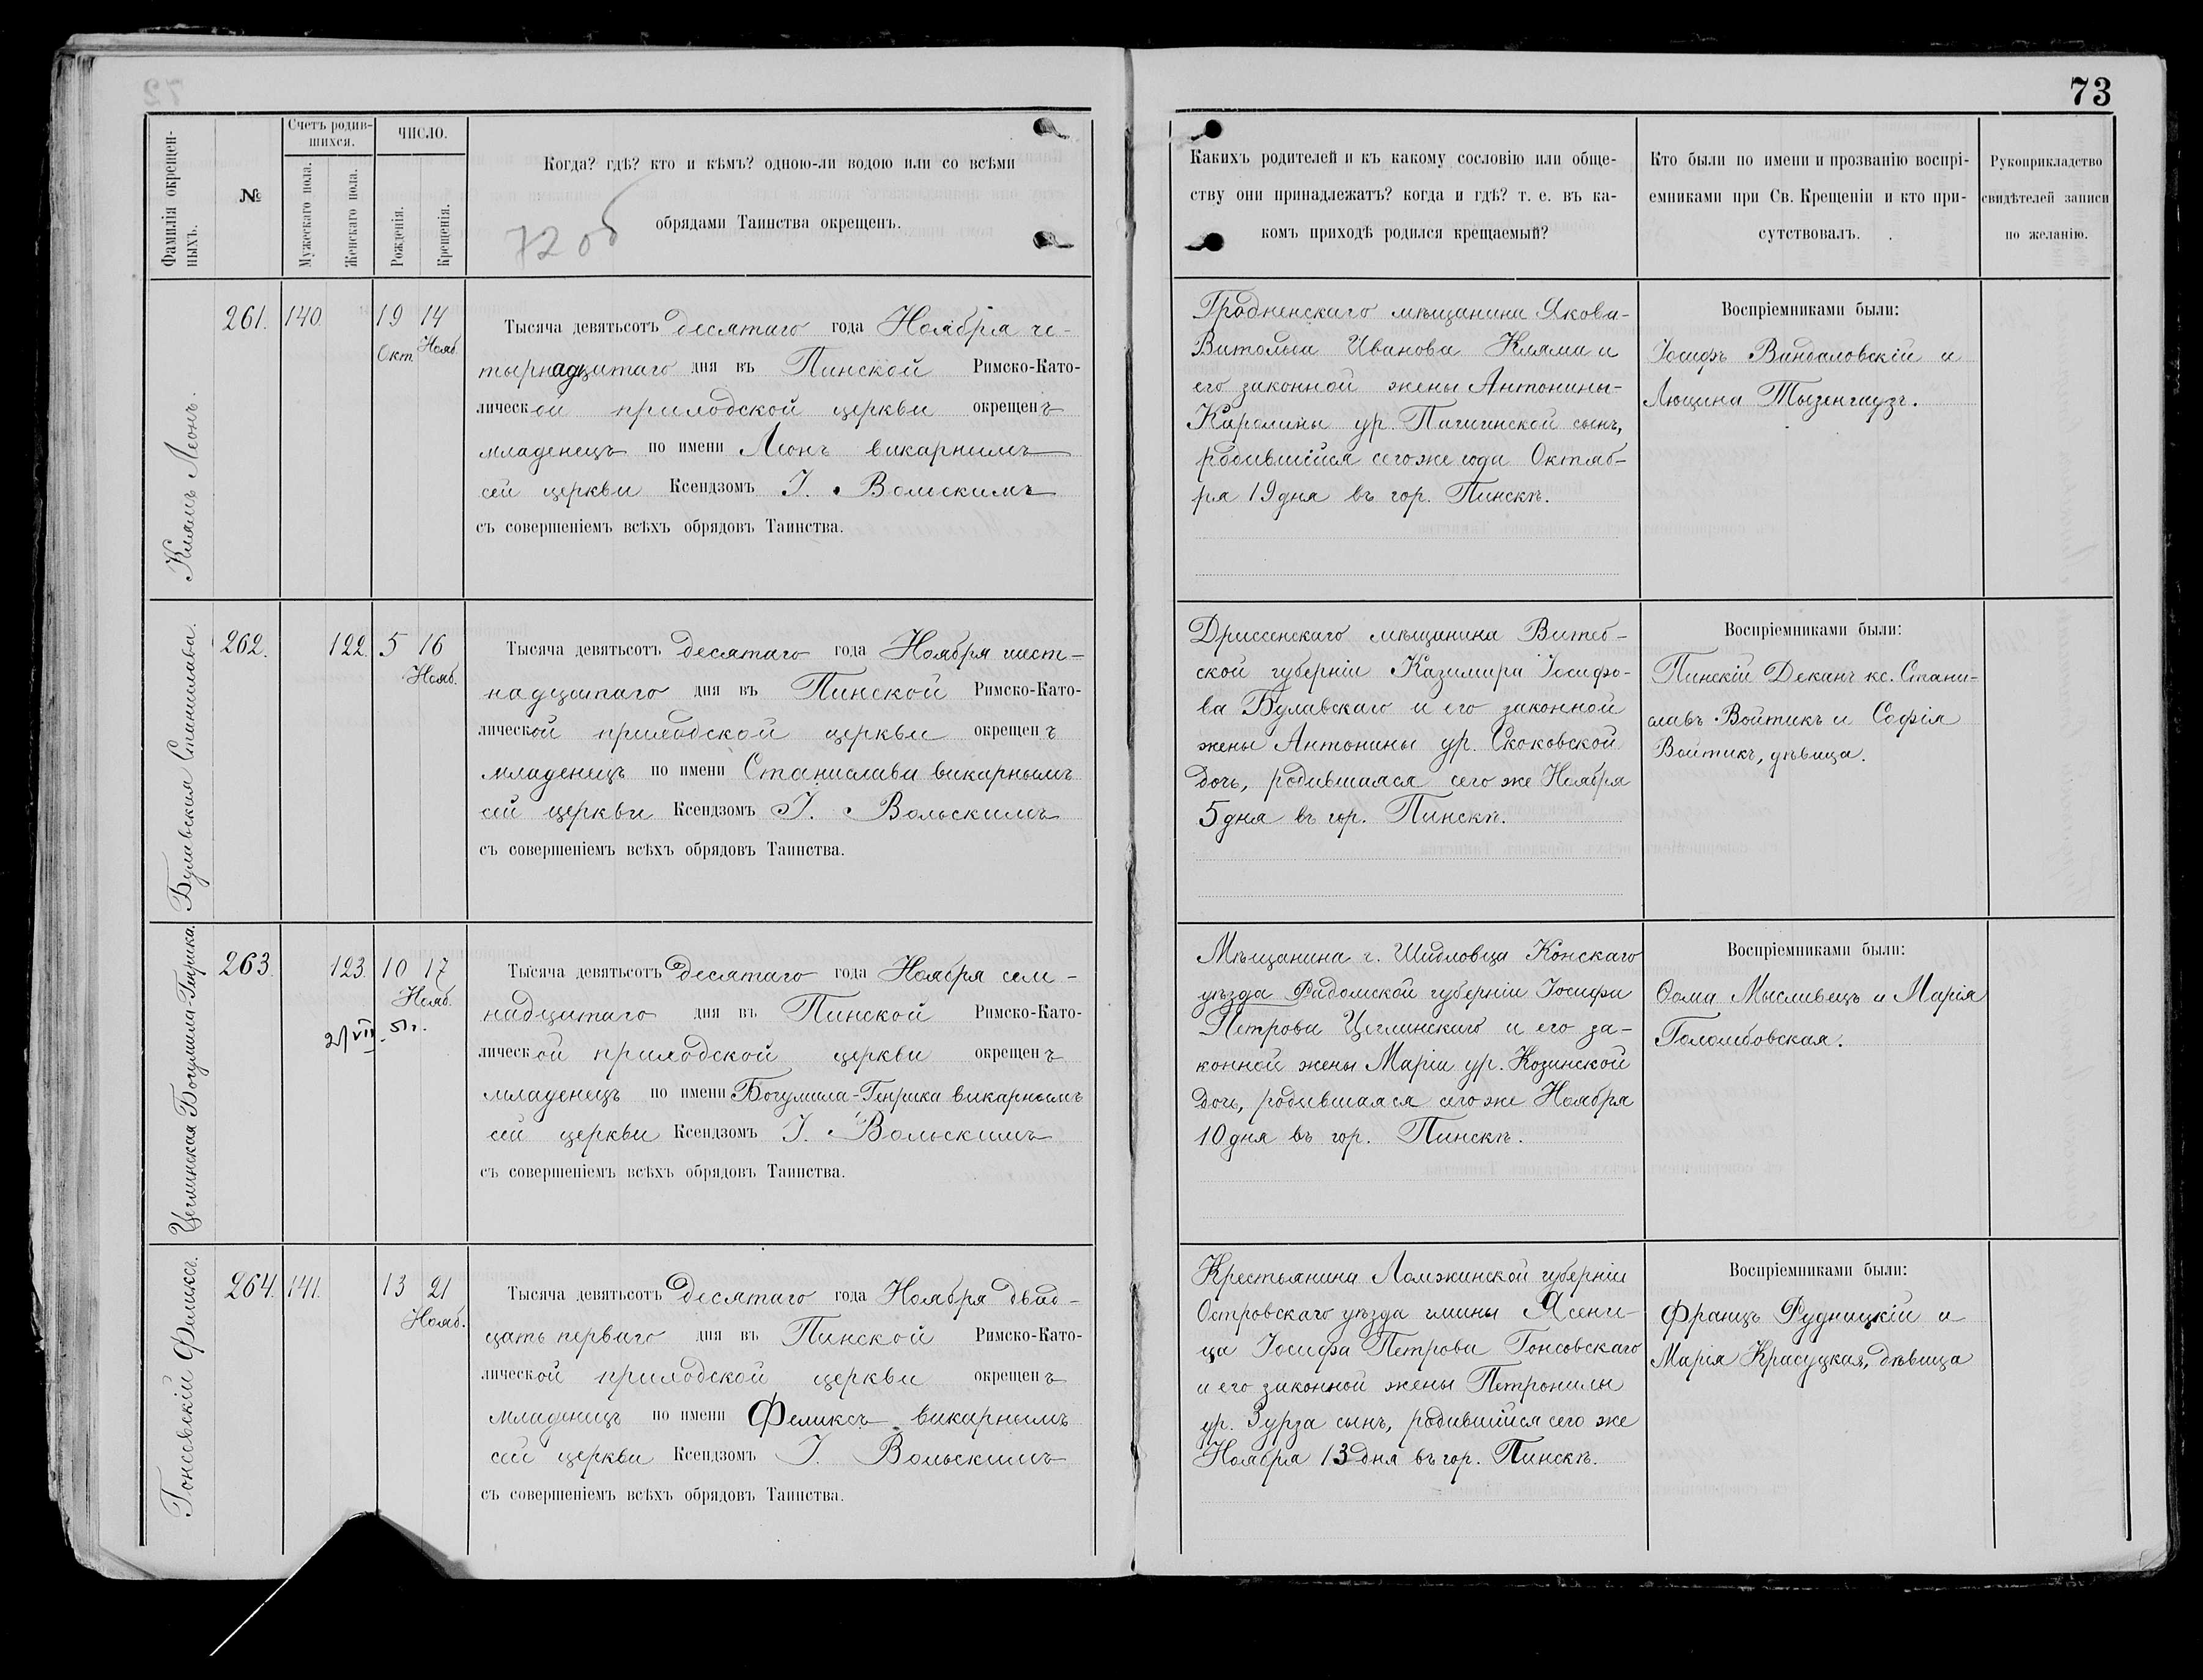 73
Фамилія окрещен-
ныхъ.
№
Счетъ родив-
шихся.
Мужескаго пола.
Женскаго пола.
ЧИСЛО.
Рожденія.
Крещенія.
Когда? гдѣ? кто и кѣмъ? одною-ли водою или со всѣми
обрядами Таинства окрещенъ.
72 об
Какихъ родителей и къ какому сословію или обще-
ству они принадлежатъ? когда и гдѣ? т. е. въ ка-
комъ приходѣ родился крещаемый?
Кто были по имени и прозванію воспрі-
емниками при Св. Крещеніи и кто при-
сутствовалъ.
Рукоприкладство
свидѣтелей записи
по желанію.
Клямъ Леонъ.
261.
140
19 14
Окт Нояб.
Тысяча девятьсотъ десятаго года Ноября че-
тырнадцатаго дня въ Пинской Римско-Като-
лической приходской церкви окрещенъ
младенецъ по имени Леонъ викарнымъ
сей церкви Ксендзомъ І. Вольскимъ
съ совершеніемъ всѣхъ обрядовъ Таинства.
Гродненскаго мѣщанина Якова-
Витольда Иванова Кляма и
его законной жены Антонины-
Каролины ур. сынъ,
родившійся сего же года Октяб-
ря 19 дня въ гор. Пинскѣ.
Воспріемниками были:
Іосифъ Вандаловскій и
Люцина Тызенгаузъ.
Булавская Станислава.
262.
122.
5 16
Нояб.
Тысяча девятьсотъ десятаго года Ноября шест-
надцатаго дня въ Пинской Римско-Като-
лической приходской церкви окрещенъ
младенецъ по имени Станислава викарнымъ
сей церкви Ксендзомъ І. Вольскимъ
съ совершеніемъ всѣхъ обрядовъ Таинства.
Дриссенскаго мѣщанина Витеб-
ской губерніи Казимира Іосифо-
ва Булавскаго и его законной
жены Антонины ур. Скоковской
дочь, родившаяся сего же Ноября
5 дня въ гор. Пинскѣ.
Воспріемниками были:
Пинскій Деканъ кс. Стани-
славъ Войтикъ и Софія
Войтикъ, дѣвица.
Цеглинская Богумила-Генрика.
263.
123.
10 17
Нояб.
2/VII - 51 г.
Тысяча девятьсотъ десятаго года Ноября сем-
надцатаго дня въ Пинской Римско-Като-
лической приходской церкви окрещенъ
младенецъ по имени Богумила-Генрика викарнымъ
сей церкви Ксендзомъ І. Вольскимъ
съ совершеніемъ всѣхъ обрядовъ Таинства.
Мѣщанина г. Шидловца Конскаго
уѣзда Радомской губерніи Іосифа
Петрова Цеглинскаго и его за-
конной жены Маріи ур. Козинской
дочь, родившаяся сего же Ноября
10 дня въ гор. Пинскѣ.
Воспріемниками были:
Ѳома Мысливецъ и Марія
Голомбовская.
Гонсовскій Феликсъ.
264.
141.
13 21
Нояб.
Тысяча девятьсотъ десятаго года Ноября двад-
цать перваго дня въ Пинской Римско-Като-
лической приходской церкви окрещенъ
младенецъ по имени Феликсъ викарнымъ
сей церкви Ксендзомъ І. Вольскимъ
съ совершеніемъ всѣхъ обрядовъ Таинства.
Крестьянина Ломжинской губерніи
Островскаго уѣзда гмины Ясени-
ца Іосифа Петрова Гонсовскаго
и его законной жены Петронилы
ур. Зурза сынъ, родившійся сего же
Ноября 13 дня въ гор. Пинскѣ.
Воспріемниками были:
Францъ Рудницкій и
Марія Красуцкая, дѣвица